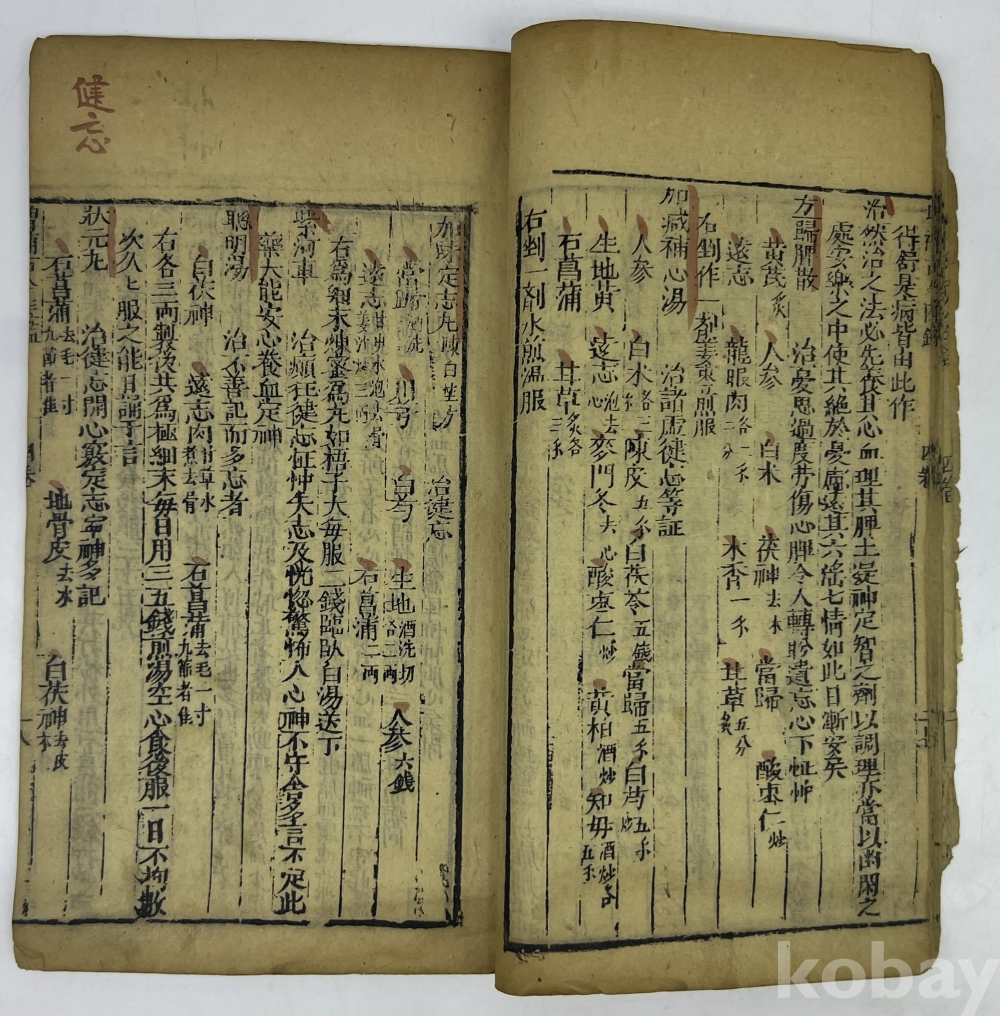 得舒是病皆由此作
治然治之法必先养其心血理其脾土凝神定智之劑以調理亦當以幽閑之
處安樂之中使其絶於憂慮遠其六淫七情如此日漸安矣
歸脾散 治憂思過度勞傷心脾令人轉盼遺忘心下怔忡
黃芪炙 人參 白朮 茯神去木 當歸 酸枣仁炒
遠志 龍眼肉各一 二分 木香一 甘草炙五分
右剉作一 姜枣煎服
加减補心湯 治諸虛健忘等証
人參 白朮各二 陳皮五 白茯苓五錢 當歸五 白芍炒五
生地黃 遠志去心 麥門冬去心 酸枣仁炒 黃柏酒炒 知母酒炒五
石菖蒲 甘草炙各三
右剉一剤水煎温服
四卷
健忘
加味定志丸 陳白坐方 治健忘
當歸酒洗 川芎 白芍 生地酒洗切各二两 人參六錢
遠志 甘草水泡去骨姜 石菖蒲二两
右為細末煉蜜為丸如梧子大每服二錢臨卧白湯送下
紫河車 治癲狂健忘怔忡失志及恍惚驚怖人心神不守舍多言不定此
藥大能安心養血定神
聰明湯 治不善記而多忘者
白茯神 遠志肉甘草水煮去骨 石菖蒲去毛一寸九節者佳
右各三两製後共為極細末每日用三五錢煎湯空心食後服一日不拘數
次久久服之能日誦千言
狀元丸 治健忘開心竅定忘寧神多記
石菖蒲去毛一寸九節者佳 地骨皮去木 白茯神去皮木
kobay